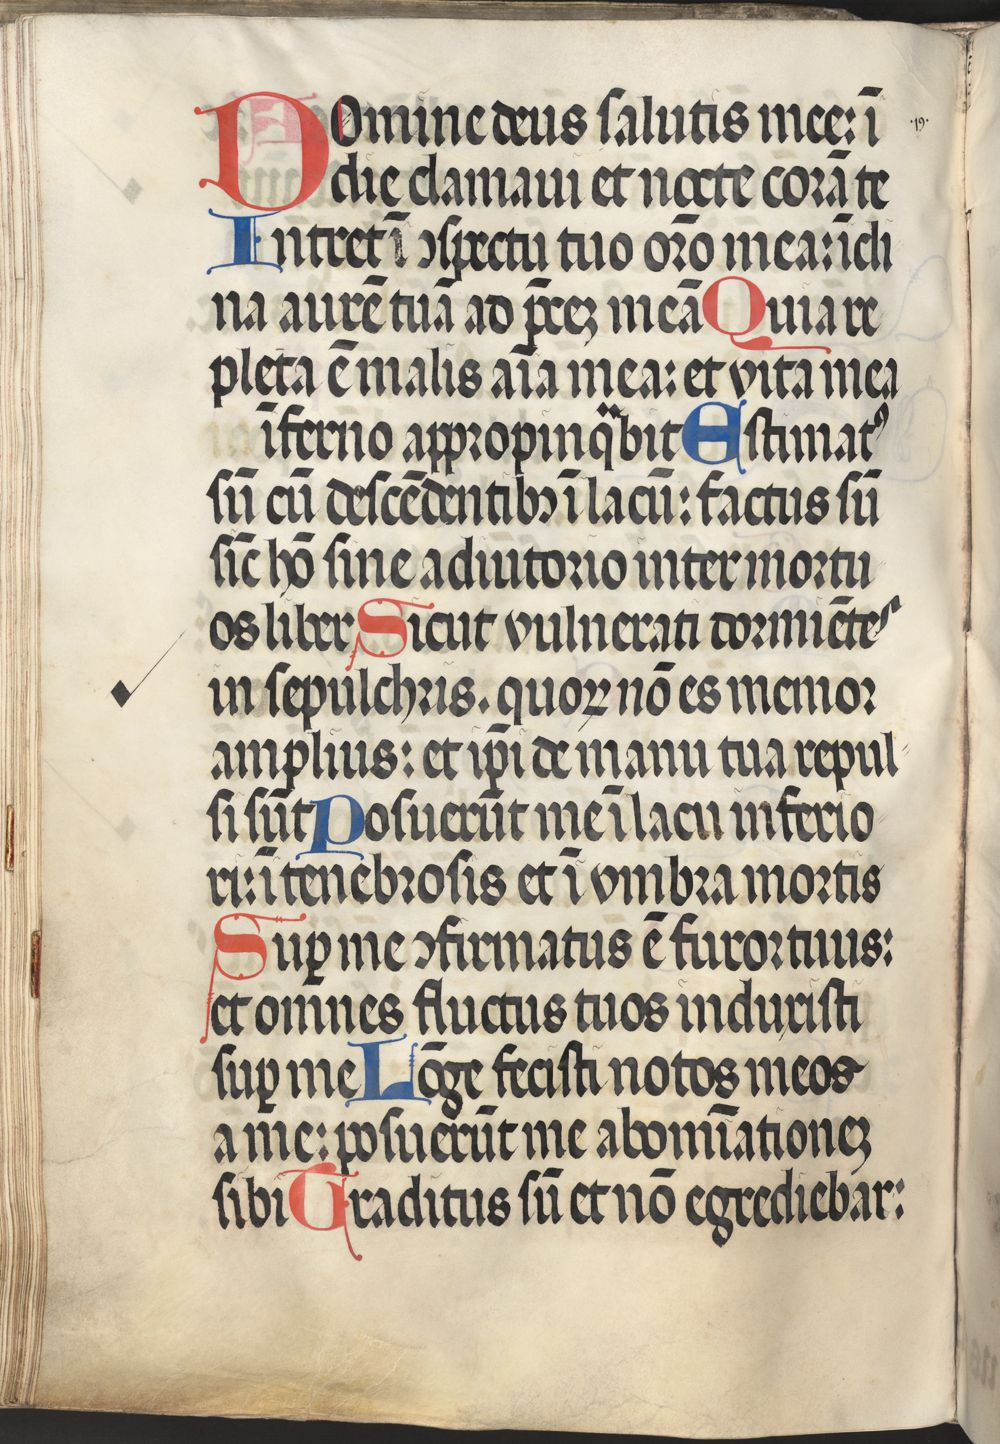 DOmine deus salutis mee: ī ·19·
die clamaui et nocte corā te
Intret ī ɔspectu tuo or̄o mea: īcli
na aurē tuā ad p̄ceꝫ meā Quia re
pleta ē malis aīa mea: et vita mea
īferno appropinqᷓbit Estimatꝰ
sū cū descēdentibꝫ ī lacū: factus sū
sic̄ hō sine adiutorio inter mortu
os liber Sicut vulnerati dormiētes
in sepulchris. quoꝝ nō es memor
amplius: et ip̄i de manu tua repul
si sūt Posuerūt me ī lacu inferio
ri: ī tenebrosis et ī vmbra mortis
Suꝑ me ɔfirmatus ē furor tuus:
et omnes fluctus tuos induxisti
suꝑ me Lōge fecisti notos meos
a me: posuerūt me abomīationeꝫ
sibi Traditus sū et nō egrediebar: